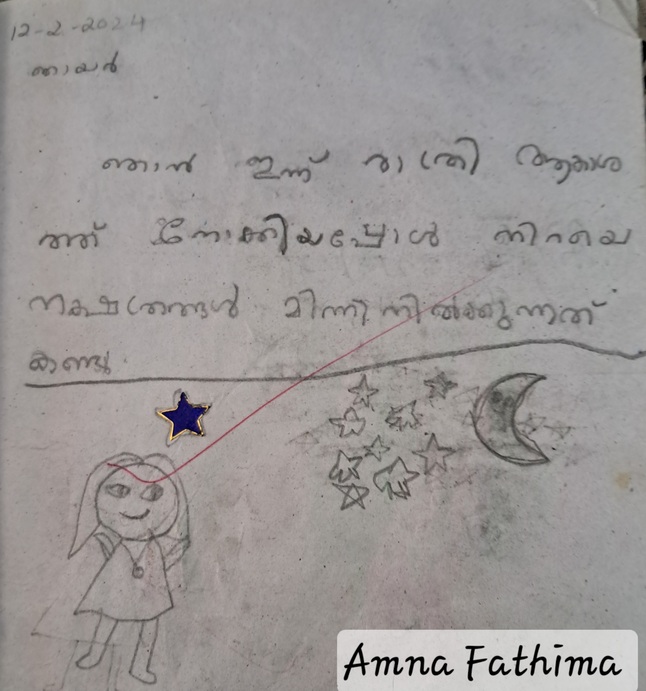 12-2-2024
ഞായർ
ഞാൻ ഇന്ന് രാത്രി ആകാശ
ത്ത് നോക്കിയപ്പോൾ നിറയെ
നക്ഷത്രങ്ങൾ മിന്നിനിൽക്കുന്നത്
കണ്ടു.
Amna Fathima